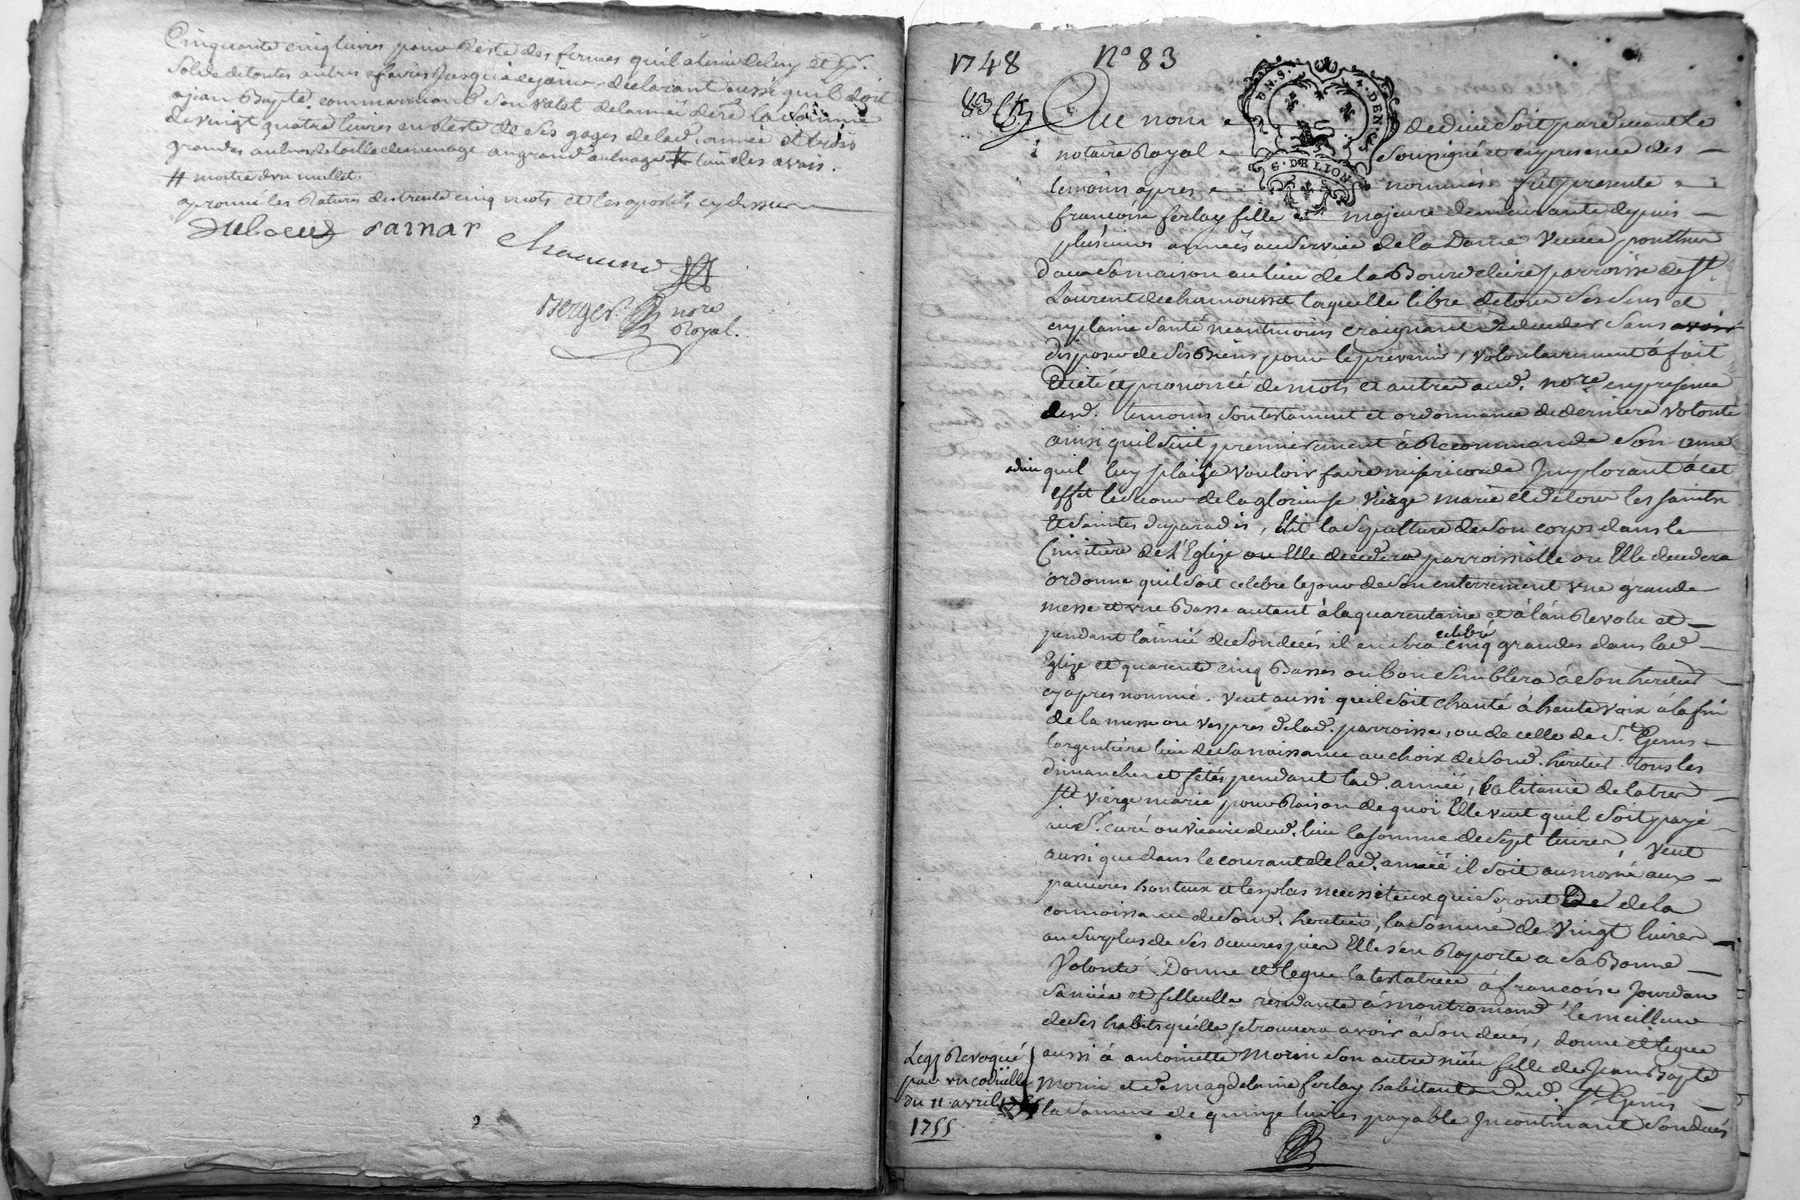 Cinquante cinq livres pour Reste des fermes quil a tenu deluy et pr.
Solde de toutes autres afaires Jusqu'a cejour, declarant aussi quil doit
a jean Bapte. commarmond Son valet delannée derre la Somme
de vingt quatre livres en Reste de Ses gages de lad. année et trois
grandes aulnes de toille de menage au grand aulnage # lun des avais.
# moitie d'un mullet.
aprouvé les Ratures de trente cinq mots et les apostils cy dessus
Duboeuf parnar
chavund
Berger nore
Royal.
1748 No 83
83
G. DE LION
Que nous dedieu Soit pardevant Le
notaire Royal Soussigné et en presence des
temoins apres nommés fut presente
francoise ferlay fille majeure demeurante depuis
plusieurs années au Service de la Dame Veuve ponthus
dans Sa maison au lieu de la Bourdeliere parroisse de St.
Laurent de chamousset laquelle libre de tous Ses Sens et
en plaine Santé neantmoins craignant de deceder Sans avoir
disposé de Ses Biens pour le prevenir, volontairement à fait
dicté et prononcé de mots et autres aud. nore. en presence
desd. temoins Son testament et ordonnance de derniere volonté
ainsi quil Suit premierement à Recommandé Son ame
adieu quil luy plaise vouloir faire misericorde Implorant à cet
effet le Secour de la glorieuse vierge marie et de tous les Saints
Et Saintes du paradis, Elit la Sepulture de Son corps dans le
Cimitiere de l'Eglize ou Elle decedera parroissialle ou Elle decedera
ordonne quil Soit celebré le jour de Son enterrement vne grande
messe et vne Basse autant à la quarentaine et à l'an Revolu et
pendant l'année de Son decés il en Sera celebré cinq grandes dans lad.
Eglize et quarente cinq Basses ou bon Semblera à Son heritier
cy apres nommé. Veut aussi quil Soit chanté à haute voix à la fin
de la messe ou vespres de lad. parroisse, ou de celle de St. Genis
largentière lieu de Sa naissance au choix de Sond. heritier tous les
dimanches et fêtes pendant lad. année, la litanie de la tres
Ste vierge marie pour Raison de quoi Elle veut quil Soit payé
au Sr. curé ou vicaire dud. lieu la Somme de Sept livres, Veut
aussi que dans le courant de lad. année il Soit aumoné aux
pauvres honteux et les plus necessiteux qui Seront de la
connoissance de Sond. heritier, la Somme de Vingt livres
au Surplus de Ses oeuvres pies Elle s'en Raporte a Sa Bonne
Volonté. Donne et legue la testatrice à francoise Jourdan
Sa niéce et filleulle residante à montromand le meilleur
de Ses habits qu'elle Se trouvera avoir à Son decés, donne et legue
aussi à antoinette Morin Son autre niéce fille de Jean Bapte
Morin et de magdelaine ferlay habitante dud. St. Genis
la Somme de quinze livres payable Incontinant Son decés
Legs Revoqué
par vn codicille
du 11 avril
1755